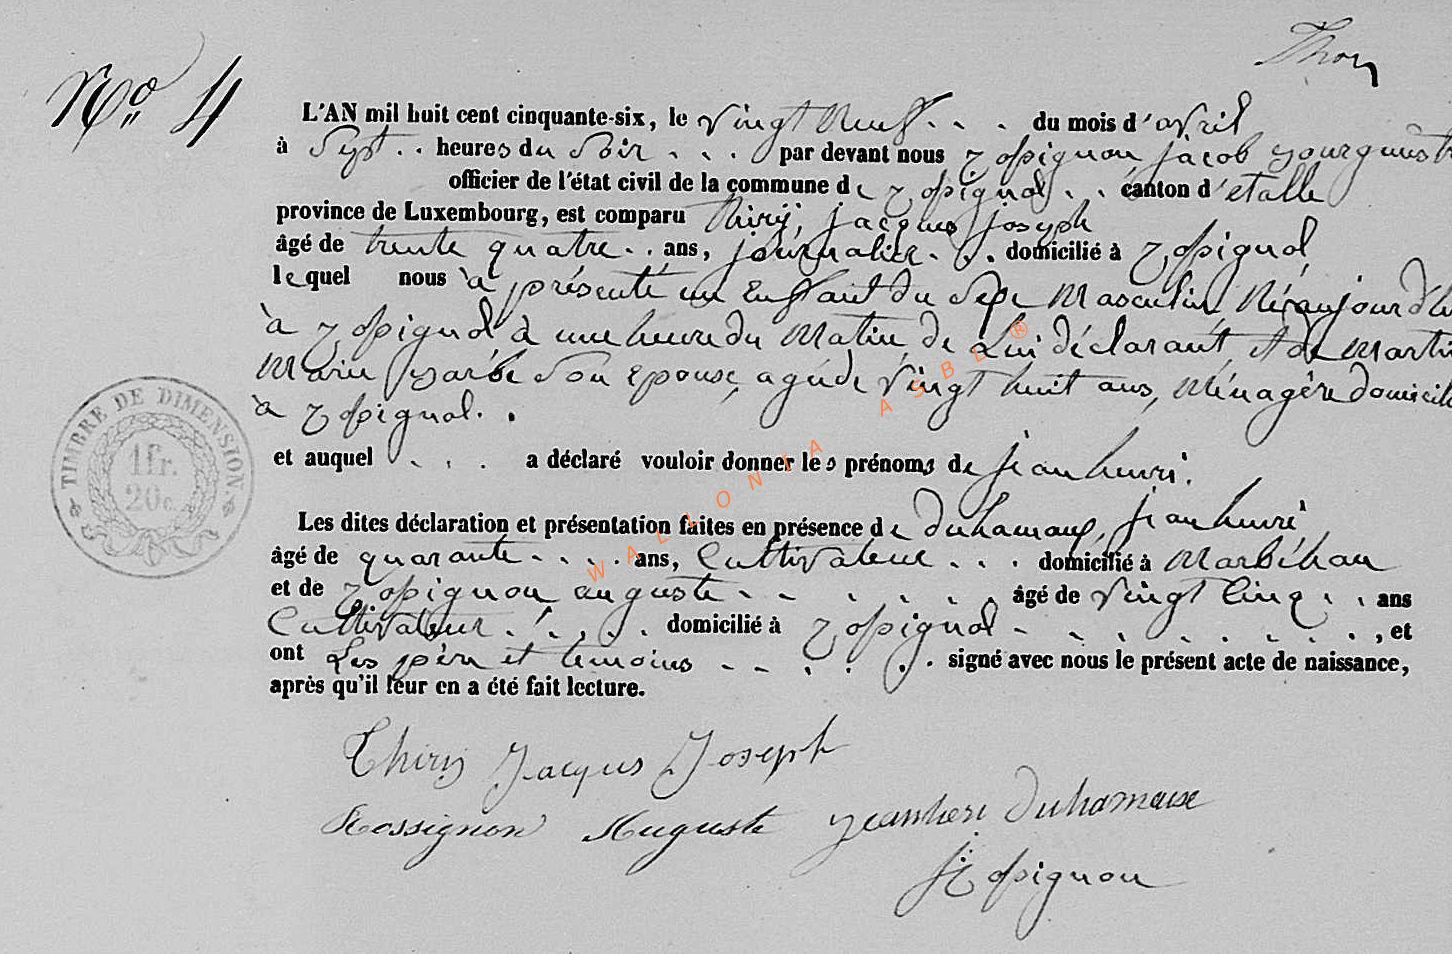 Thiry
No 4
L'AN mil huit cent cinquante-six, le vingt neuf . . . du mois d'avril
à Sept . . heures du Soir . . . par devant nous Rossignon jacob Bourgmest
officier de l'état civil de la commune de Rossignol . . canton d'etalle
province de Luxembourg, est comparu thiry, jacques joseph
âgé de trente quatre . . ans, journalier . . . domicilié à Rossignol
lequel nous à présenté un Enfant du Sexe Masculin, Né aujourd'h
à Rossignol à une heure du Matin, de Lui déclarant, et de Marti
Marie barbe Son epouse, agée de vingt huit ans, Ménagère domicili
à Rossignol . .
et auquel . . . a déclaré vouloir donner les prénoms de jean henri.
Les dites déclaration et présentation faites en présence de duhamaux, jean henri
âgé de quarante . . . . ans, Cultivateur . . . domicilié à Marbéhan
et de Rossignon auguste - - . . . . . âgé de vingt Cinq . . ans
Cultivateur . . . . . domicilié à Rossignol - . . . . . . . . , et
ont Les père et temoins - - . . . . signé avec nous le présent acte de naissance,
après qu'il leur en a été fait lecture.
TIMBRE DE DIMENSION
1fr.
20c.
WALLONIA ASBL ®
Thiry Jacques Joseph
Rossignon Auguste jeanheri Duhameaux
JRossignon